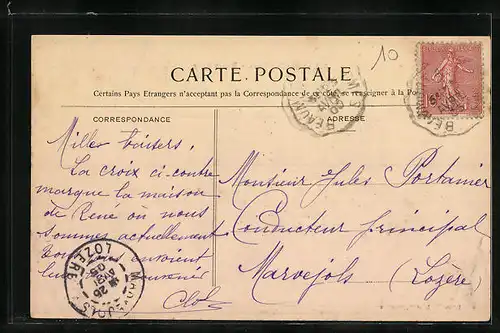 10
CARTE POSTALE
Certains Pays Etrangers n'acceptant pas la Correspondance de ce côté, se renseigner à la Po
CORRESPONDANCE
ADRESSE
Milles baisers.
La croix ci-contre
marque la maison
de Rene ou nous
sommes actuellement
envoient
leur
Monsieur Jules Portanier
Conducteur principal
Marvejols (Lozère)
MARVEJOLS
LOZERE
BEAUM